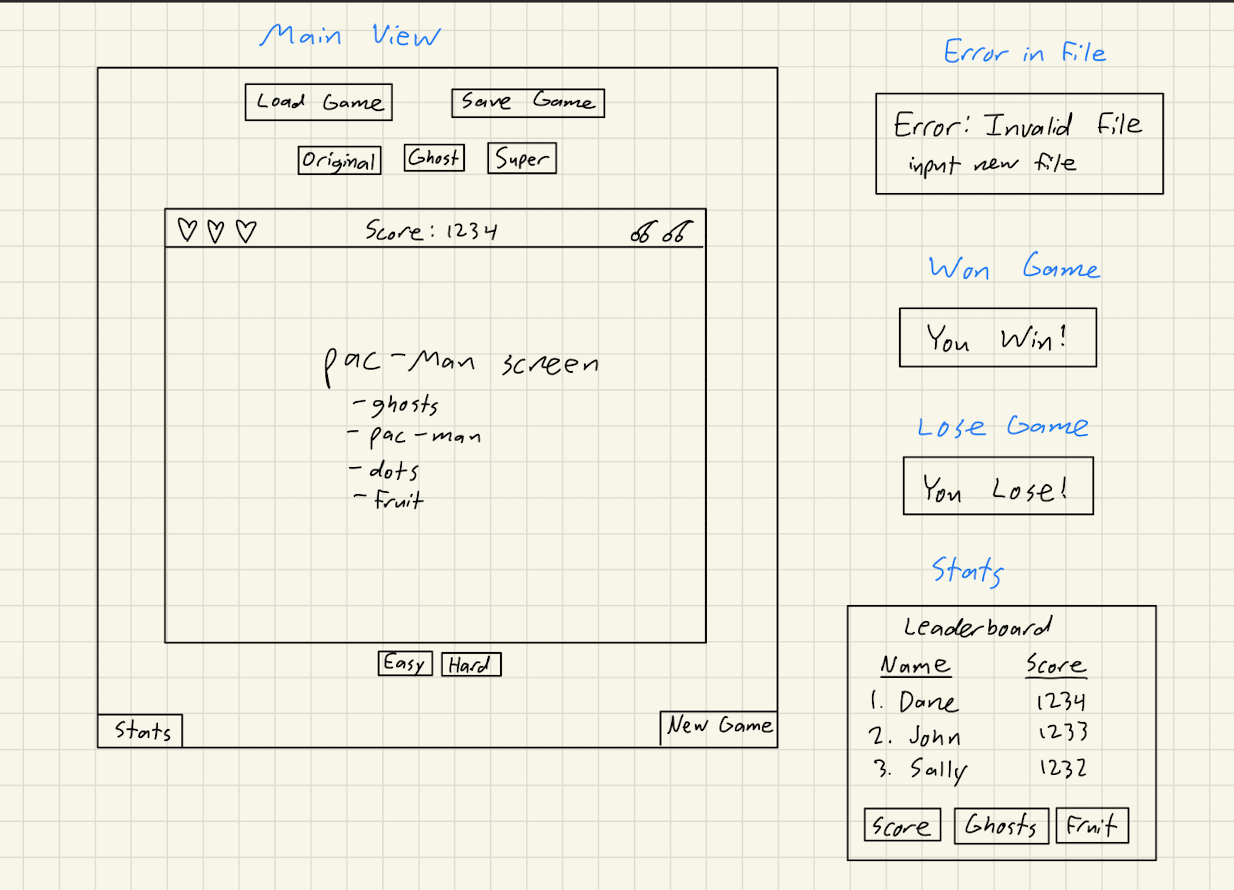 Main View
Load Game
Save Game
Original
Ghost
Super
Score: 1234
pac-Man screen
- ghosts
- pac-man
- dots
- fruit
Easy
Hard
Stats
New Game
Error in File
Error: Invalid File
input new file
Won Game
You Win!
Lose Game
You Lose!
Stats
Leaderboard
Name Score
1. Dane 1234
2. John 1233
3. Sally 1232
Score
Ghosts
Fruit